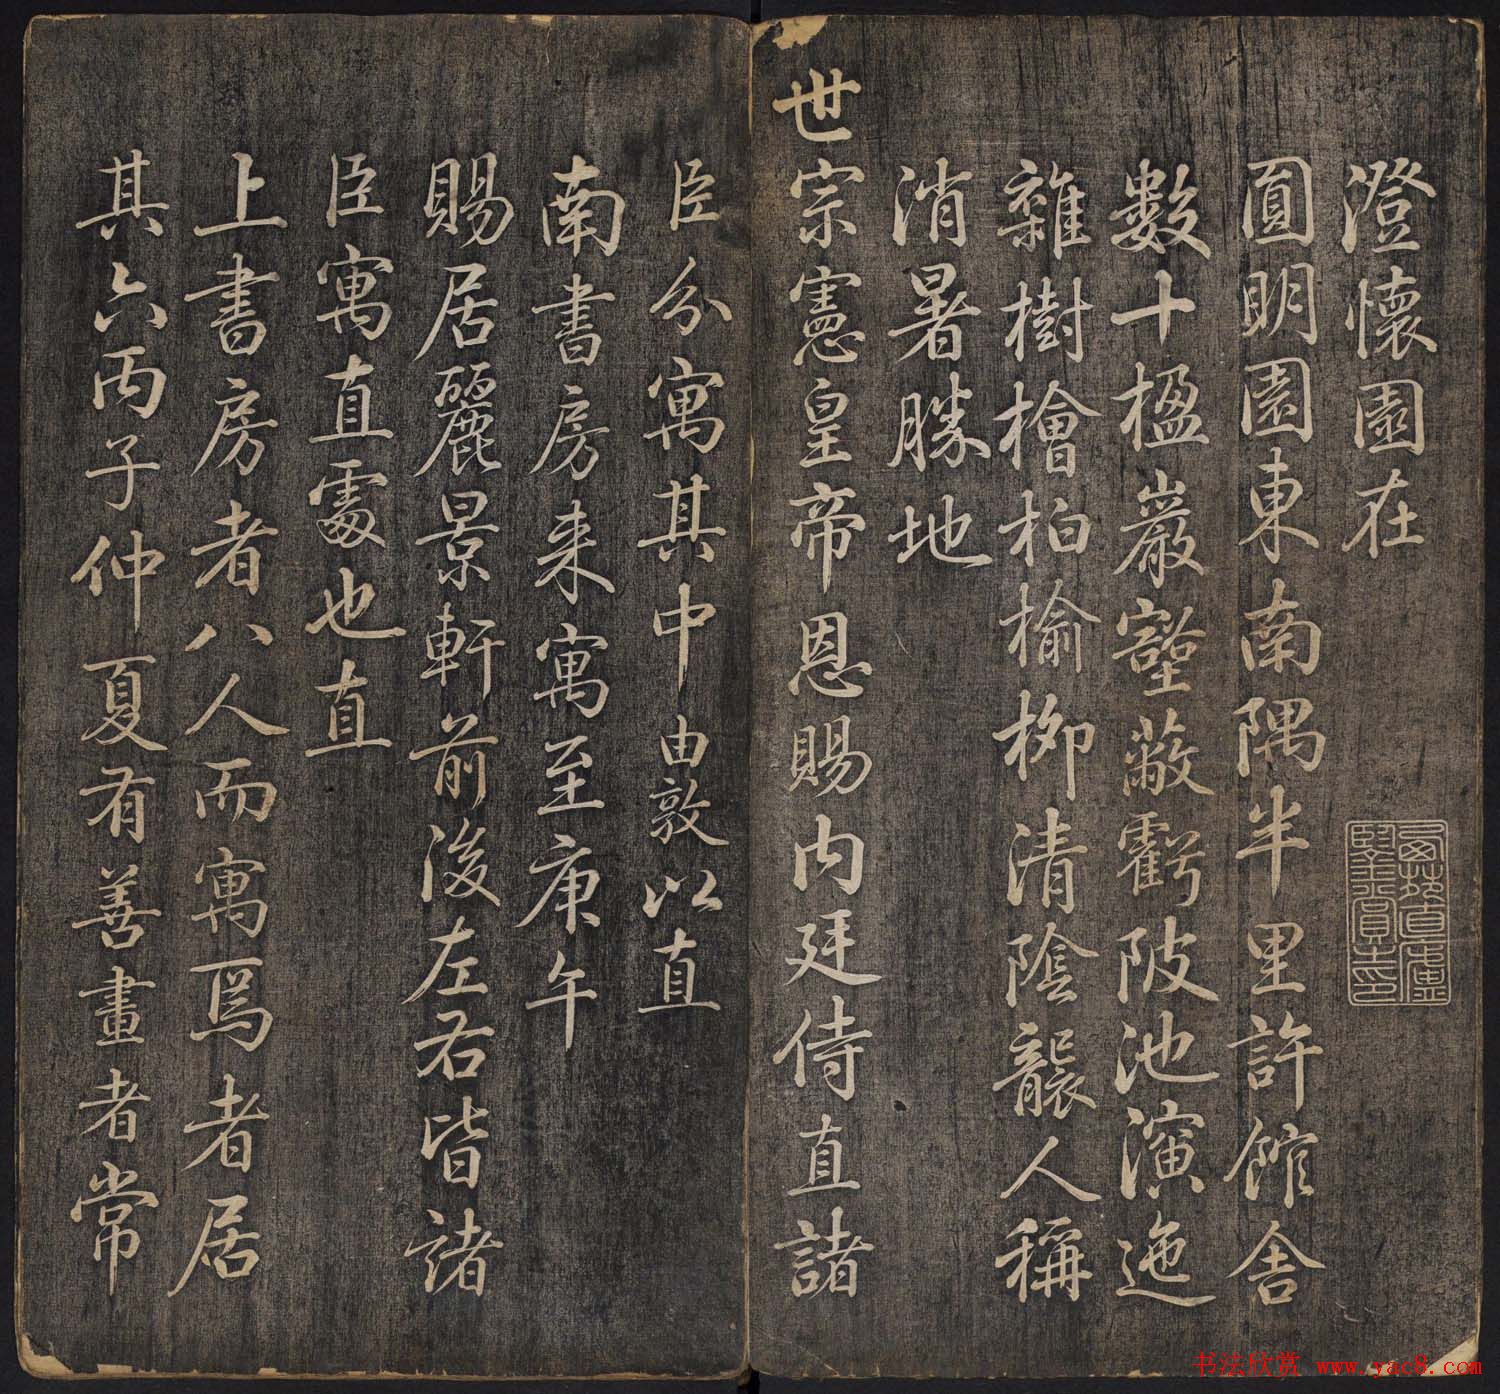 澄懷園在
圓明園東南隅半里許館舍
數十楹巖壑蔽虧陂池演迤
雜樹檜柏榆柳清陰襲人稱
消暑勝地
世宗憲皇帝恩賜内廷侍直諸
臣分寓其中由敦以直
南書房来寓至庚午
賜居麗景軒前後左右皆諸
臣寓直處也直
上書房者八人而寓焉者居
其六丙子仲夏有善畫者常
书法欣赏 www.yac8.com